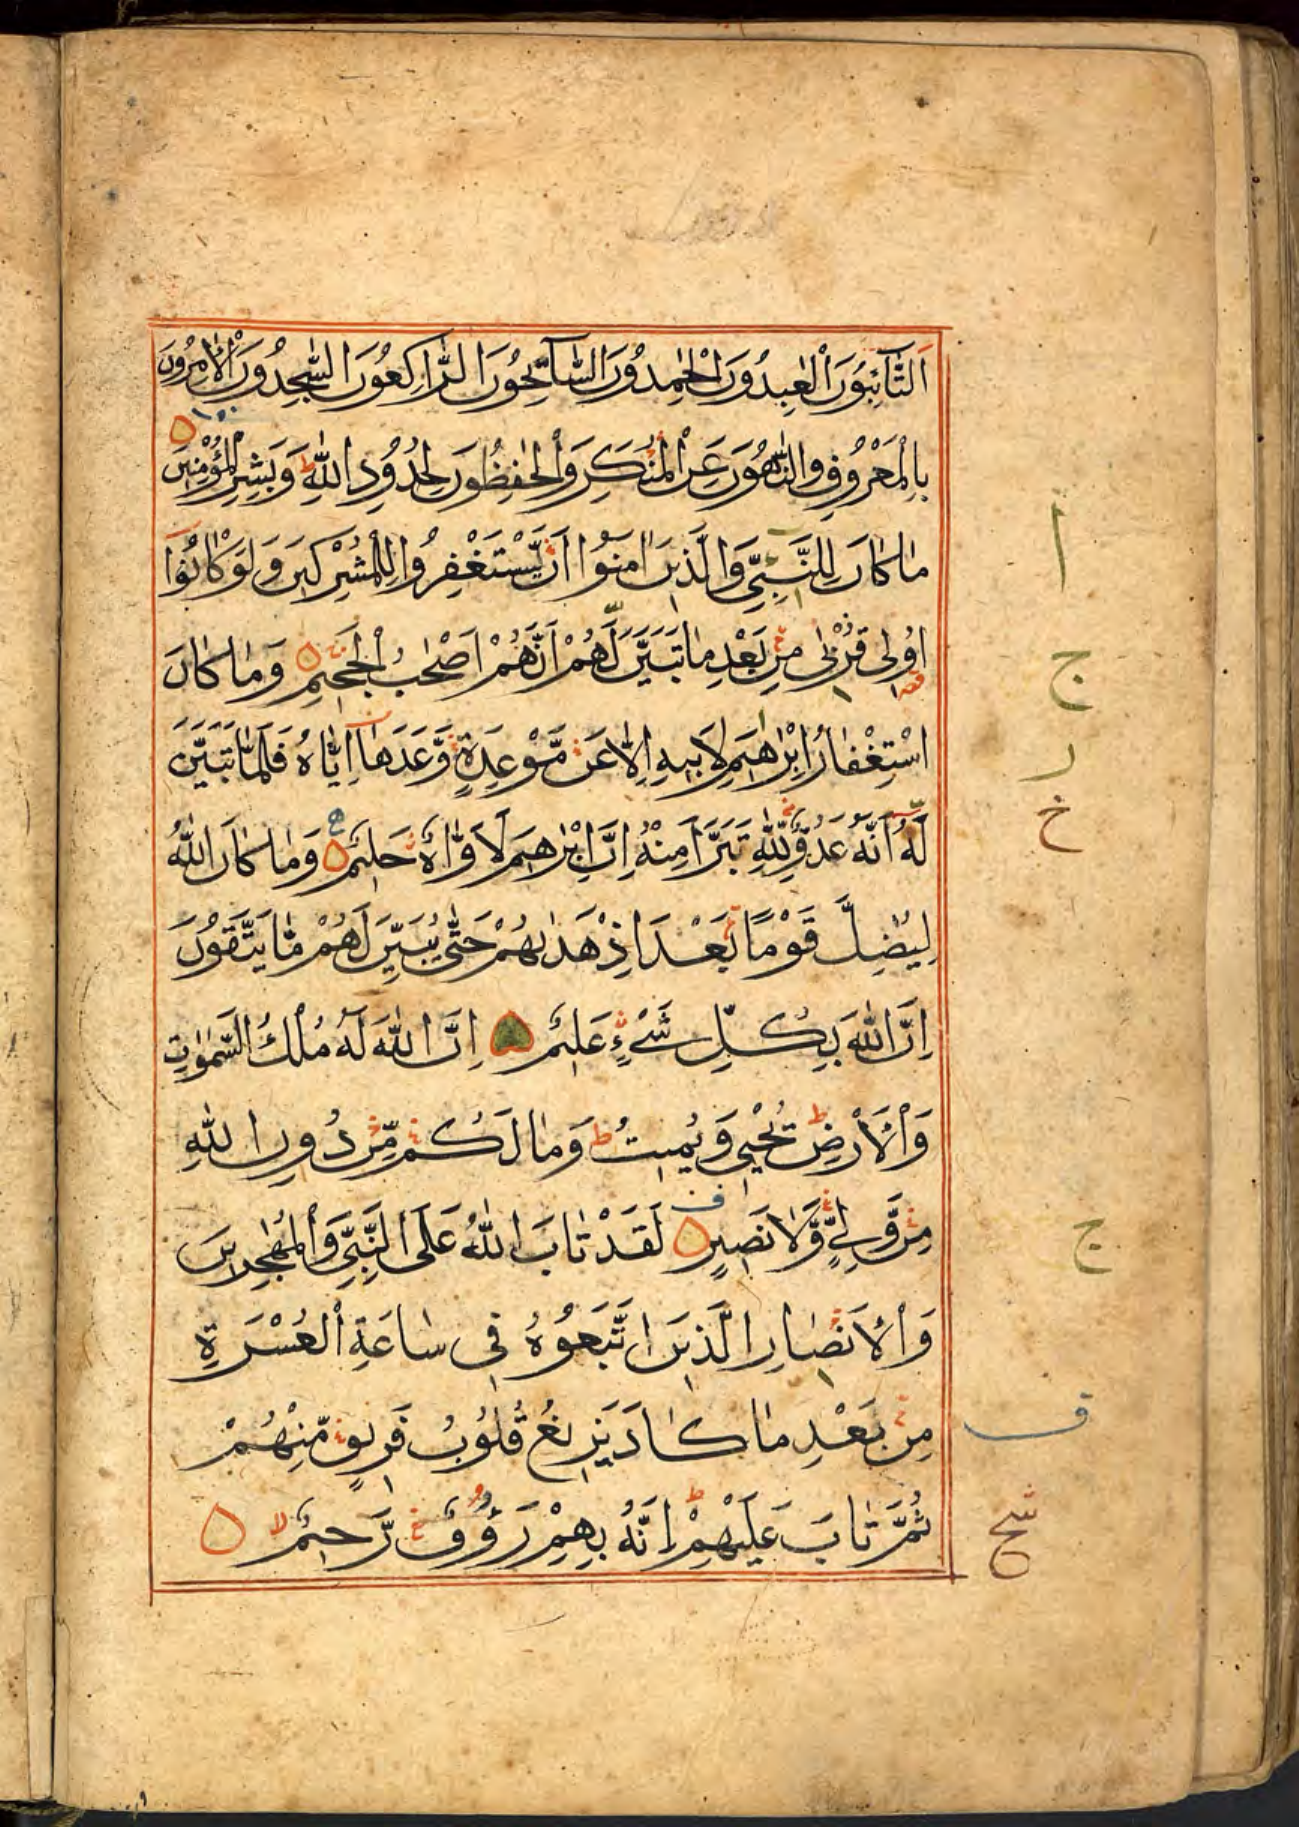 اَلتَّآئِبُوْنَ الْعٰبِدُوْنَ الْحٰمِدُوْنَ السَّآئِحُوْنَ الرَّاكِعُوْنَ السّٰجِدُوْنَ الْاٰمِرُوْنَ
بِالْمَعْرُوْفِ وَالنَّاهُوْنَ عَنِ الْمُنْكَرِ وَالْحٰفِظُوْنَ لِحُدُوْدِ اللّٰهِ ط وَبَشِّرِ الْمُؤْمِنِيْنَ
مَا كَانَ لِلنَّبِيِّ وَالَّذِيْنَ اٰمَنُوْا اَنْ يَّسْتَغْفِرُوْا لِلْمُشْرِكِيْنَ وَلَوْ كَانُوْٓا
اُولِى قُرْبٰى مِنْۢ بَعْدِ مَا تَبَيَّنَ لَهُمْ اَنَّهُمْ اَصْحٰبُ الْجَحِيْمِ وَمَا كَانَ
اسْتِغْفَارُ اِبْرٰهِيْمَ لِاَبِيْهِ اِلَّا عَنْ مَّوْعِدَةٍ وَّعَدَهَآ اِيَّاهُ فَلَمَّا تَبَيَّنَ
لَهٗٓ اَنَّهٗ عَدُوٌّ لِّلّٰهِ تَبَرَّاَ مِنْهُ اِنَّ اِبْرٰهِيْمَ لَاَوَّاهٌ حَلِيْمٌ وَمَا كَانَ اللّٰهُ
لِيُضِلَّ قَوْمًا بَعْدَ اِذْ هَدٰىهُمْ حَتّٰى يُبَيِّنَ لَهُمْ مَّا يَتَّقُوْنَ
اِنَّ اللّٰهَ بِكُلِّ شَيْءٍ عَلِيْمٌ اِنَّ اللّٰهَ لَهٗ مُلْكُ السَّمٰوٰتِ
وَالْاَرْضِ ط يُحْيٖ وَيُمِيْتُ ط وَمَا لَكُمْ مِّنْ دُوْنِ اللّٰهِ
مِنْ وَّلِيٍّ وَّلَا نَصِيْرٍ لَقَدْ تَابَ اللّٰهُ عَلَى النَّبِيِّ وَالْمُهٰجِرِيْنَ
وَالْاَنْصَارِ الَّذِيْنَ اتَّبَعُوْهُ فِيْ سَاعَةِ الْعُسْرَةِ
مِنْۢ بَعْدِ مَا كَادَ يَزِيْغُ قُلُوْبُ فَرِيْقٍ مِّنْهُمْ
ثُمَّ تَابَ عَلَيْهِمْ ط اِنَّهٗ بِهِمْ رَءُوْفٌ رَّحِيْمٌ لا
ا
ج
ر
خ
ج
ف